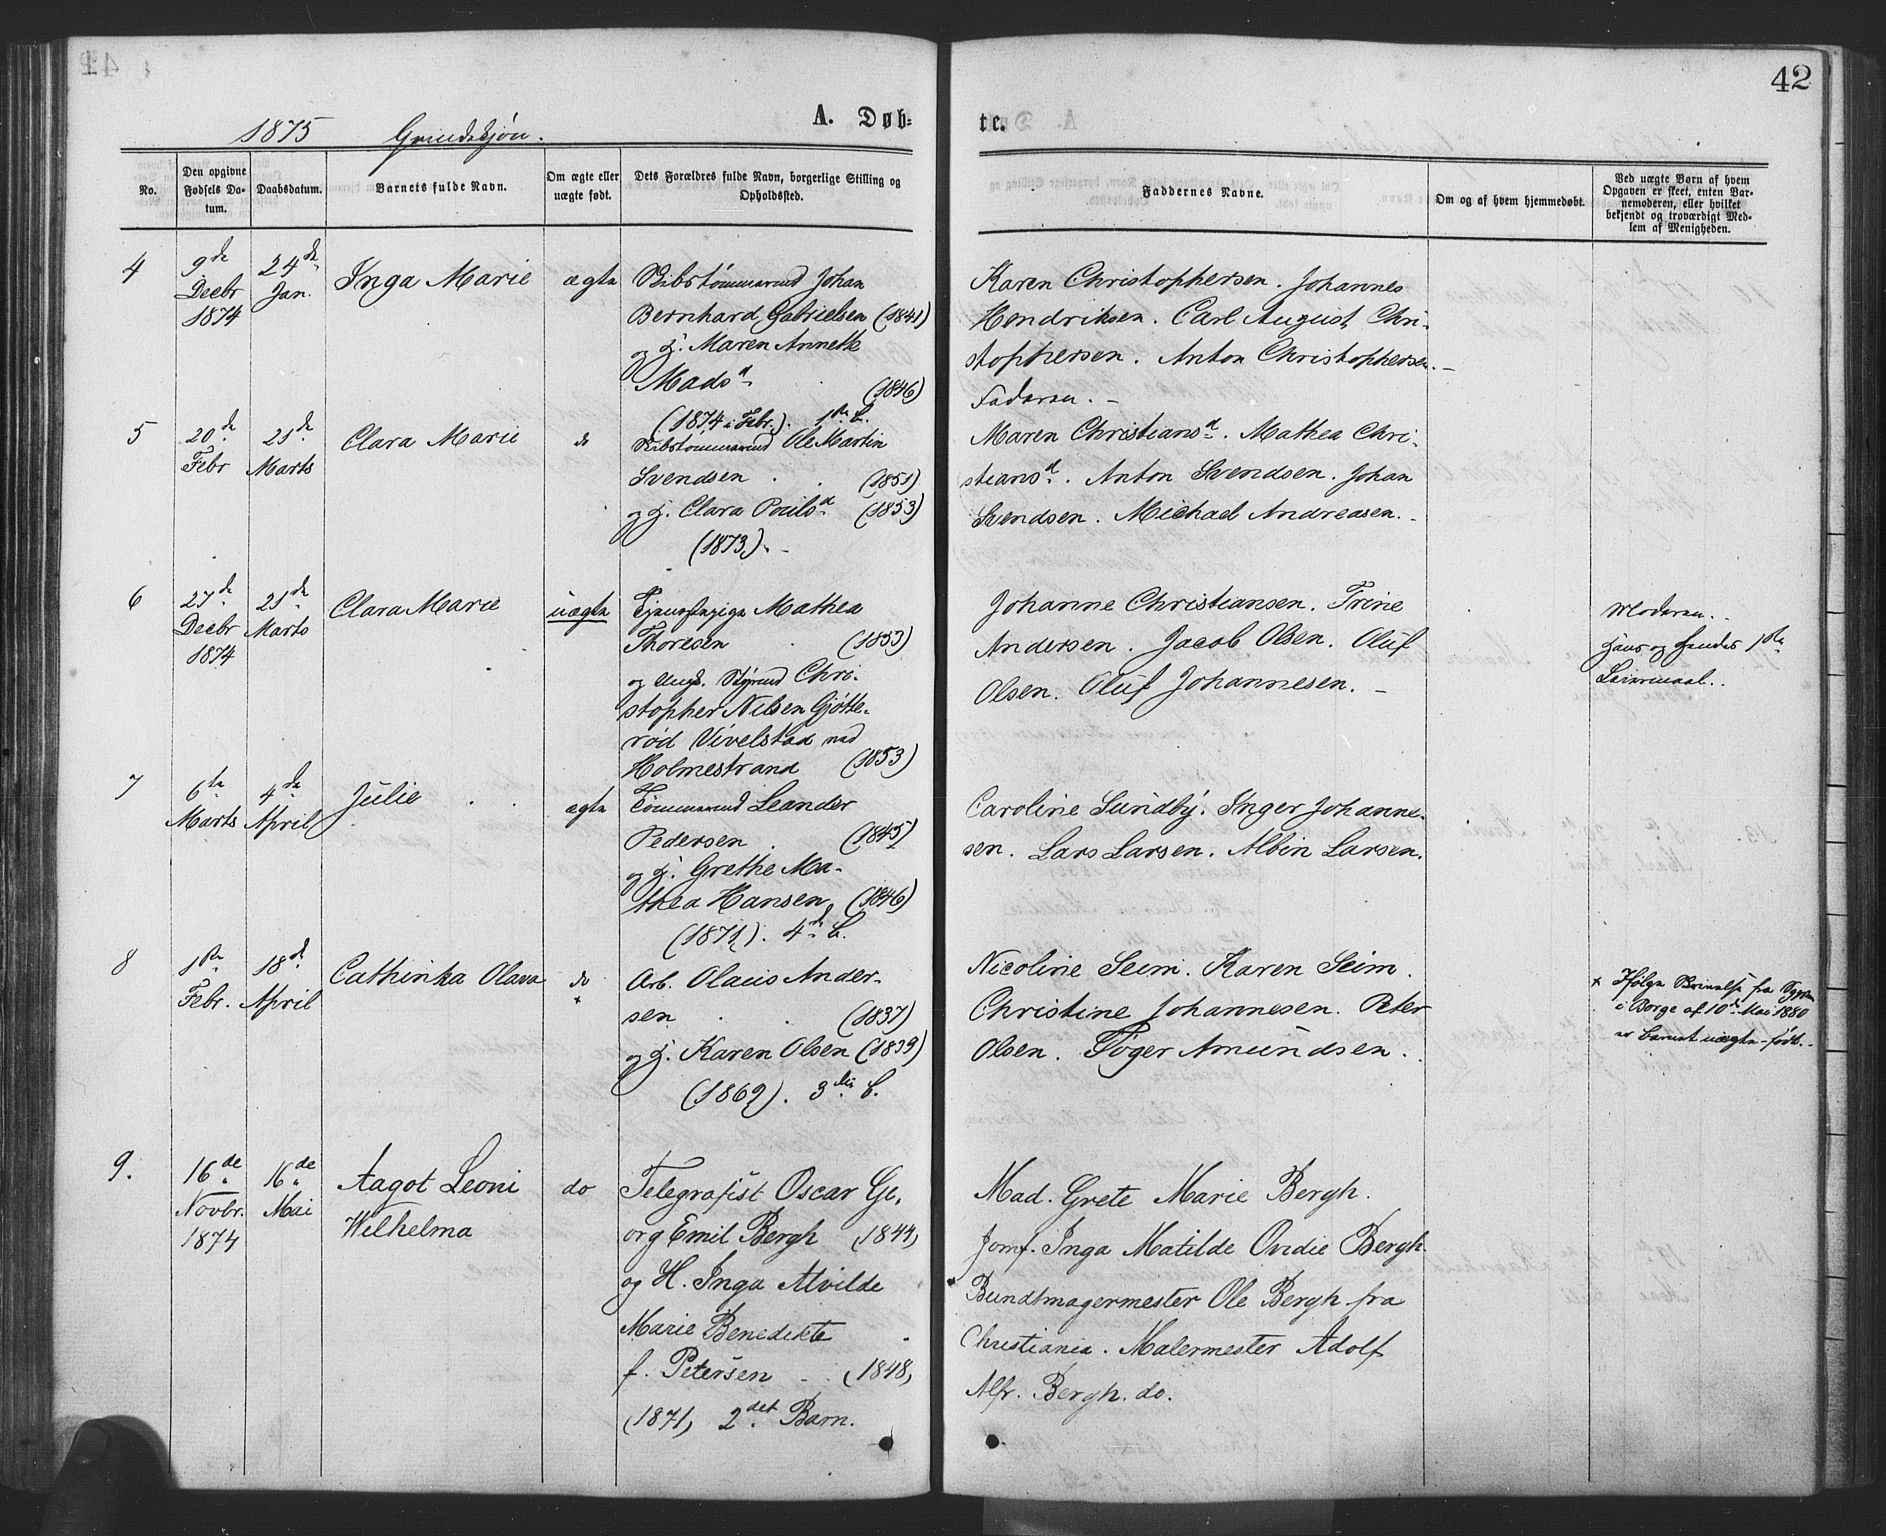 42
1875 Grundesjön.
A. Døb-
te.
No.
Den opgivne Fødsels Da-
tum.
Daabsdatum.
Barnets fulde Navn.
Om ægte eller
uægte født.
Dets Forældres fulde Navn, borgerlige Stilling og
Opholdssted.
Faddernes Navne.
Om og af hvem hjemmedøbt.
Ved uægte Børn af hvem
Opgaven er skeet, enten Bar-
nemoderen, eller hvilket
bekjendt og troværdigt Med-
lem af Menigheden.
4
9de
Decbr
1874
24de
Jan.
Inga Marie
ægte
Skibstømmermd Johan
Bernhard Gabrielsen (1841)
og H. Maren Annette
Madsd. (1846)
(1874 i Febr.). 1ste B.
Karen Christophersen. Johannes
Hendriksen. Carl August Chri-
stophersen. Anton Christophersen. -
Faderen. -
5
20de
Febr
21de
Marts
Clara Marie
do
Skibstømmermd Ole Martin
Svendsen (1851)
og H. Clara Poulsd. (1853)
(1873). -
Maren Christiansd. Mathea Chri-
stiansd. Anton Svendsen. Johan
Svendsen. Michael Andreasen. -
6
27de
Decbr
1874
21de
Marts
Clara Marie
uægte
Tjenestepige Mathea
Thoresen (1853)
og Ungk. Styrmd Chri-
stopher Nilsen Gjøtte-
rød Vivelstad ved
Holmestrand (1853)
Johanne Christiansen. Trine
Andersen. Jacob Olsen. Oluf
Olsen. Oluf Johannesen. -
Moderen.
Hans og Hendes 1ste
Leiermaal.
7
6te
Marts
4de
April
Julie
ægte
Tømmermd Leander
Pedersen (1845)
og H. Grethe Ma-
thea Hansen (1846)
(1871). 4de B.
Caroline Sundby. Inger Johanne-
sen. Lars Larsen. Albin Larsen.
8
1ste
Febr.
18de
April
Cathinka Olava
do
+
Arb. Olaus Ander-
sen (1837)
og H. Karen Olsen (1839)
(1869). 3die B.
Nicoline Seim. Karen Seim.
Christine Johannesen. Peter
Olsen. Tøger Amundsen.
+ Ifølge Skrivelse fra Sgpr.
i Borge af 10de Mai 1880
er Barnet uægte født.
9.
16de
Novbr.
1874
16de
Mai
Aagot Leoni
Wilhelma
do
Telegrafist Oscar Ge-
org Emil Bergh (1844)
og H. Inga Alvilde
Marie Benedikte
f. Petersen (1848)
(1871) 2det Barn.
Mad. Grete Marie Bergh.
Jomf. Inga Matilde Ovidie Bergh
Bundtmagermester Ole Bergh fra
Christiania. Malermester Adolf
Alfr. Bergh. do.